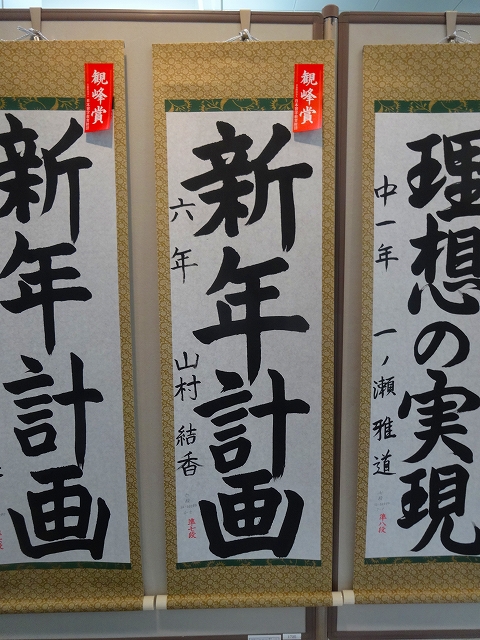 理想の実現
中一年 一ノ瀬雅道
準八段
観峰賞
新年計画
六年 山村結香
準七段
観峰賞
新年計画